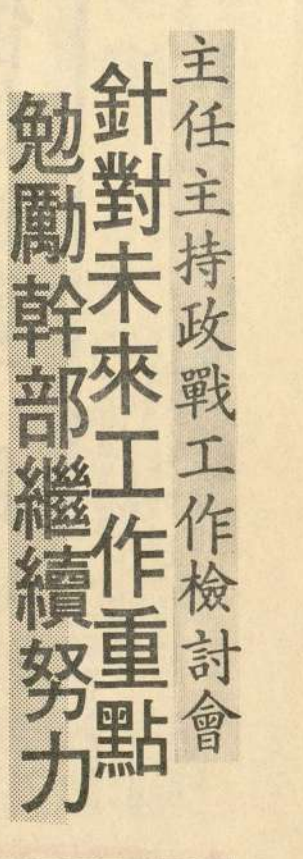 主任主持政戰工作檢討會
針對未來工作重點
勉勵幹部繼續努力